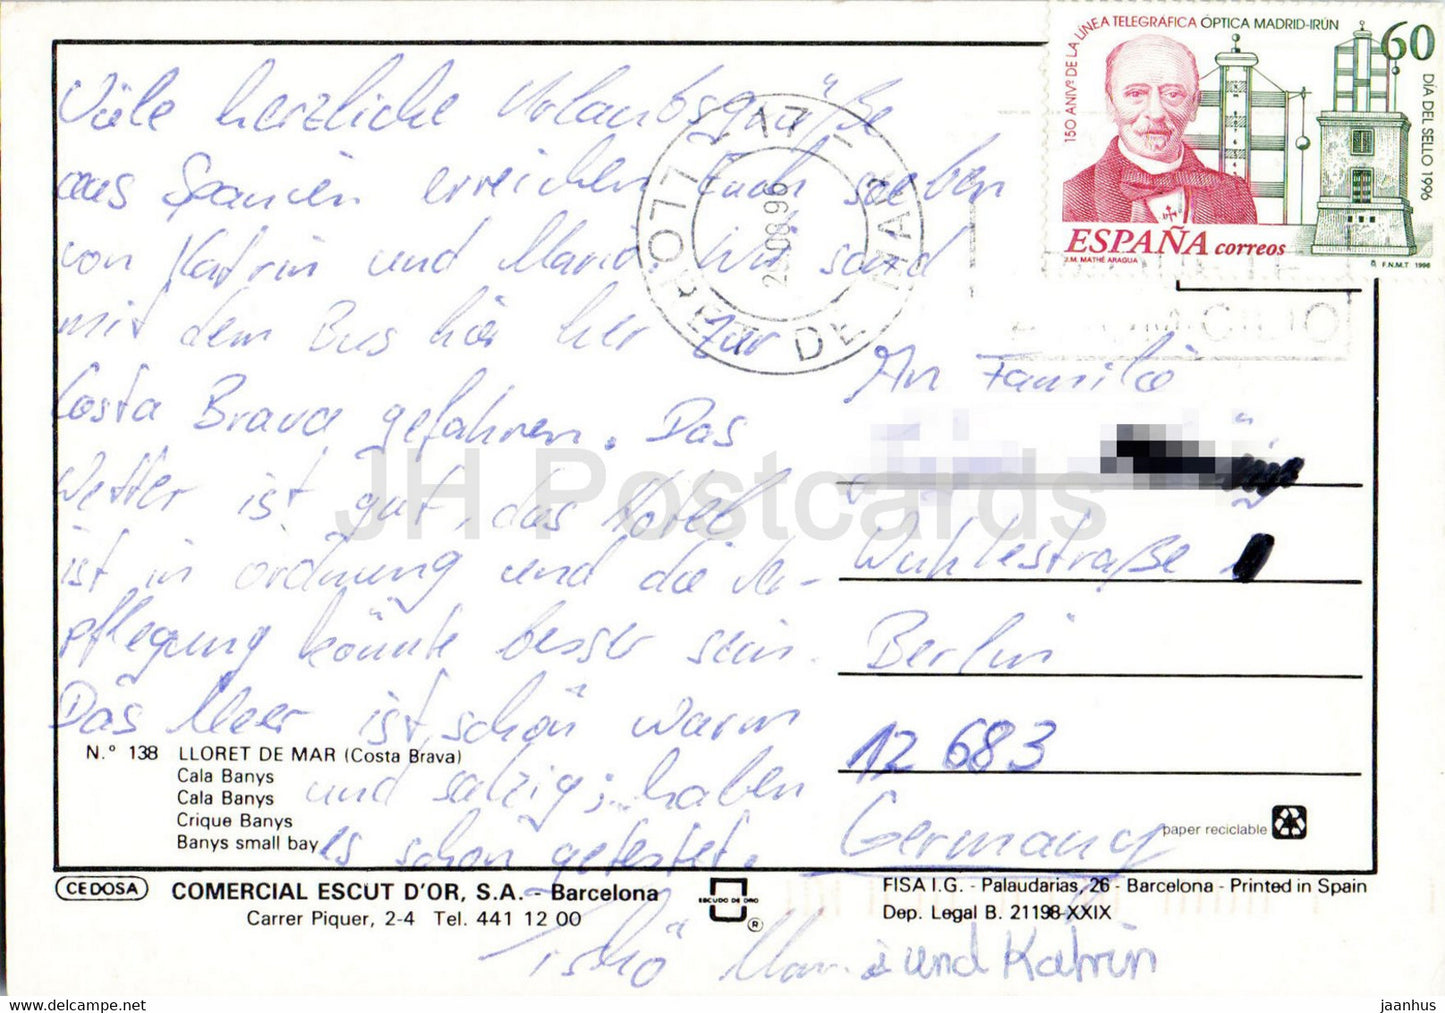 Viele herzliche Urlaubsgrüße
aus Spanien erreichen Euch soeben
von Katrin und Maria. Wir sind
mit dem Bus hier her zur
Costa Brava gefahren. Das
Wetter ist gut, das Hotel
ist in ordnung und die Ver-
pflegung könnte besser sein.
Das Meer ist schön warm
und salzig; haben
es schon getestet.
Tschö Maria und Katrin
N.º 138 LLORET DE MAR (Costa Brava)
Cala Banys
Cala Banys
Crique Banys
Banys small bay
CEDOSA COMERCIAL ESCUT D'OR, S.A. - Barcelona
Carrer Piquer, 2-4 Tel. 441 12 00
ESCUDO DE ORO
®
LLORET DE MAR
17
08 96
DOMICILIO
150 ANIVº DE LA LÍNEA TELEGRÁFICA ÓPTICA MADRID-IRÚN
60
DÍA DEL SELLO 1996
ESPAÑA correos
J.M. MATHÉ ARAGUA
F.N.M.T 1996
An Familie
Wuhlestraße
Berlin
12 683
Germany
paper reciclable
FISA I.G. - Palaudarias, 26 - Barcelona - Printed in Spain
Dep. Legal B. 21198-XXIX
JH Postcards
jaanhus